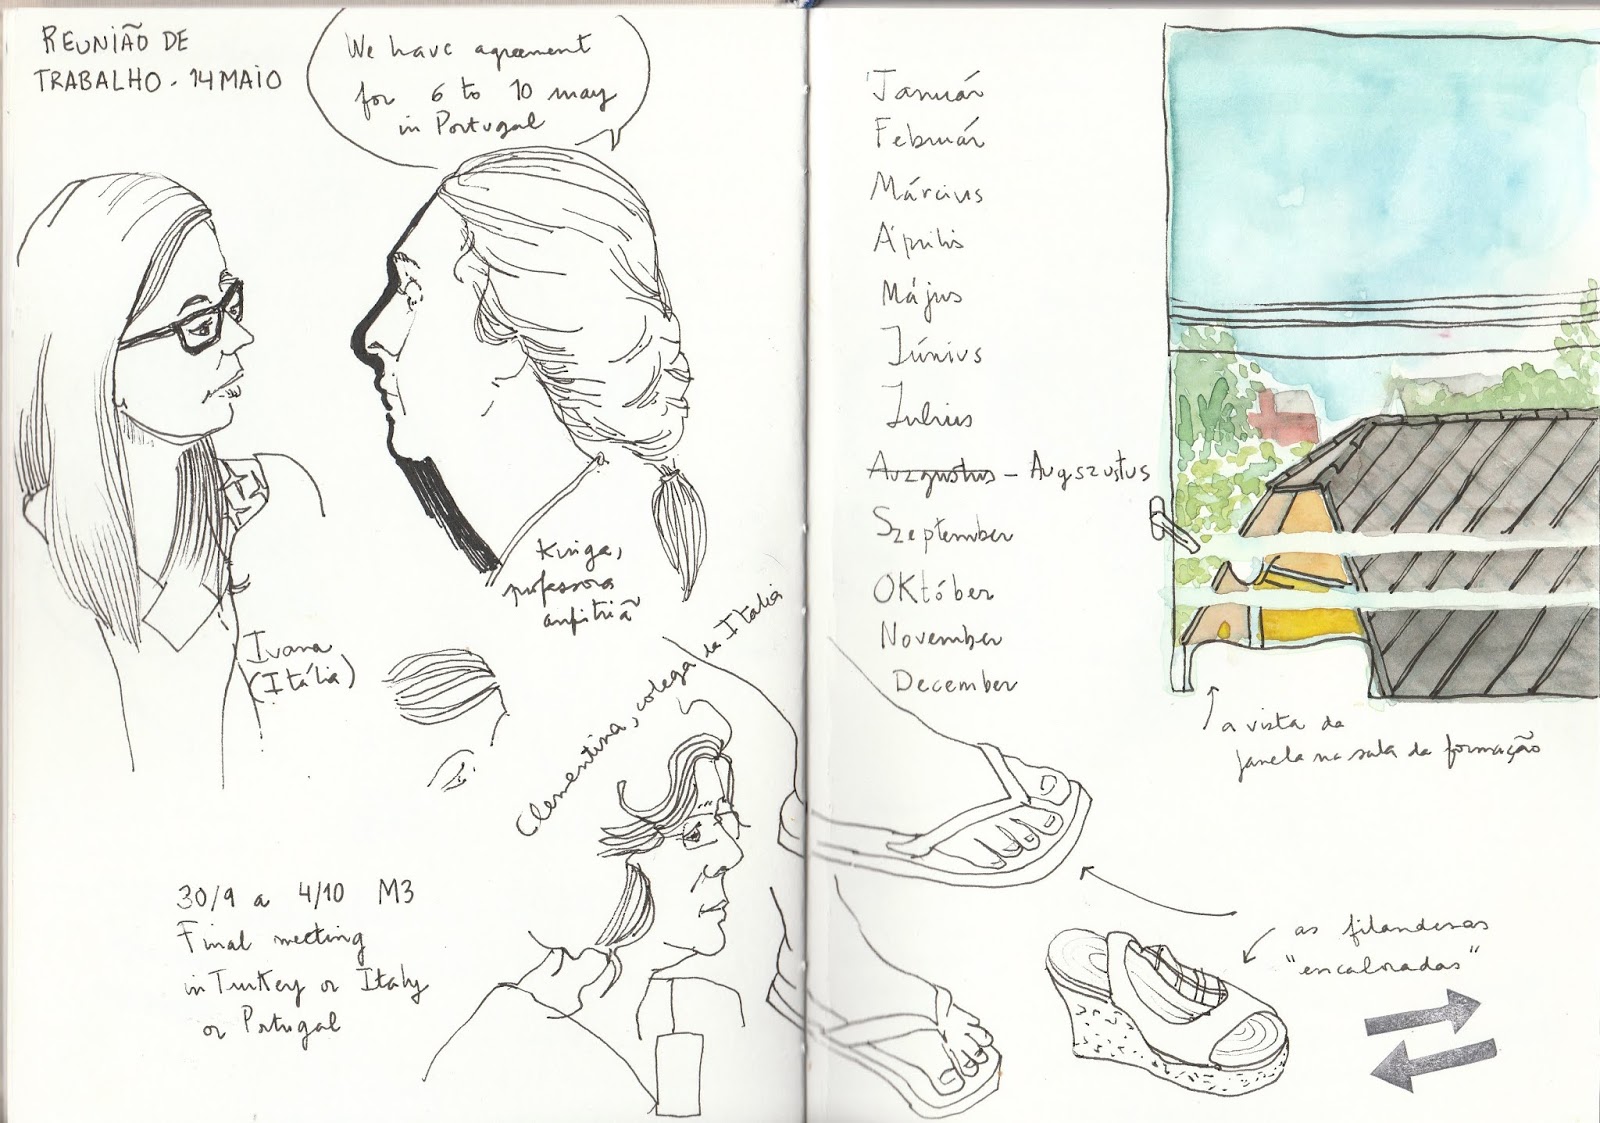 REUNIÃO DE
TRABALHO. 14 MAIO
We have agreement
for 6 to 10 may
in Portugal
Ivana
(Itália)
Kinga,
professora
anfitriã
Clementina, colega da Italia
30/9 a 4/10 M3
Final meeting
in Turkey or Italy
or Portugal
Január
Február
Március
Április
Május
Június
Július
Auzgustus - Augszustus
Szeptember
Október
November
December
a vista da
janela na sala da formação
as filandesas
"encaloradas"